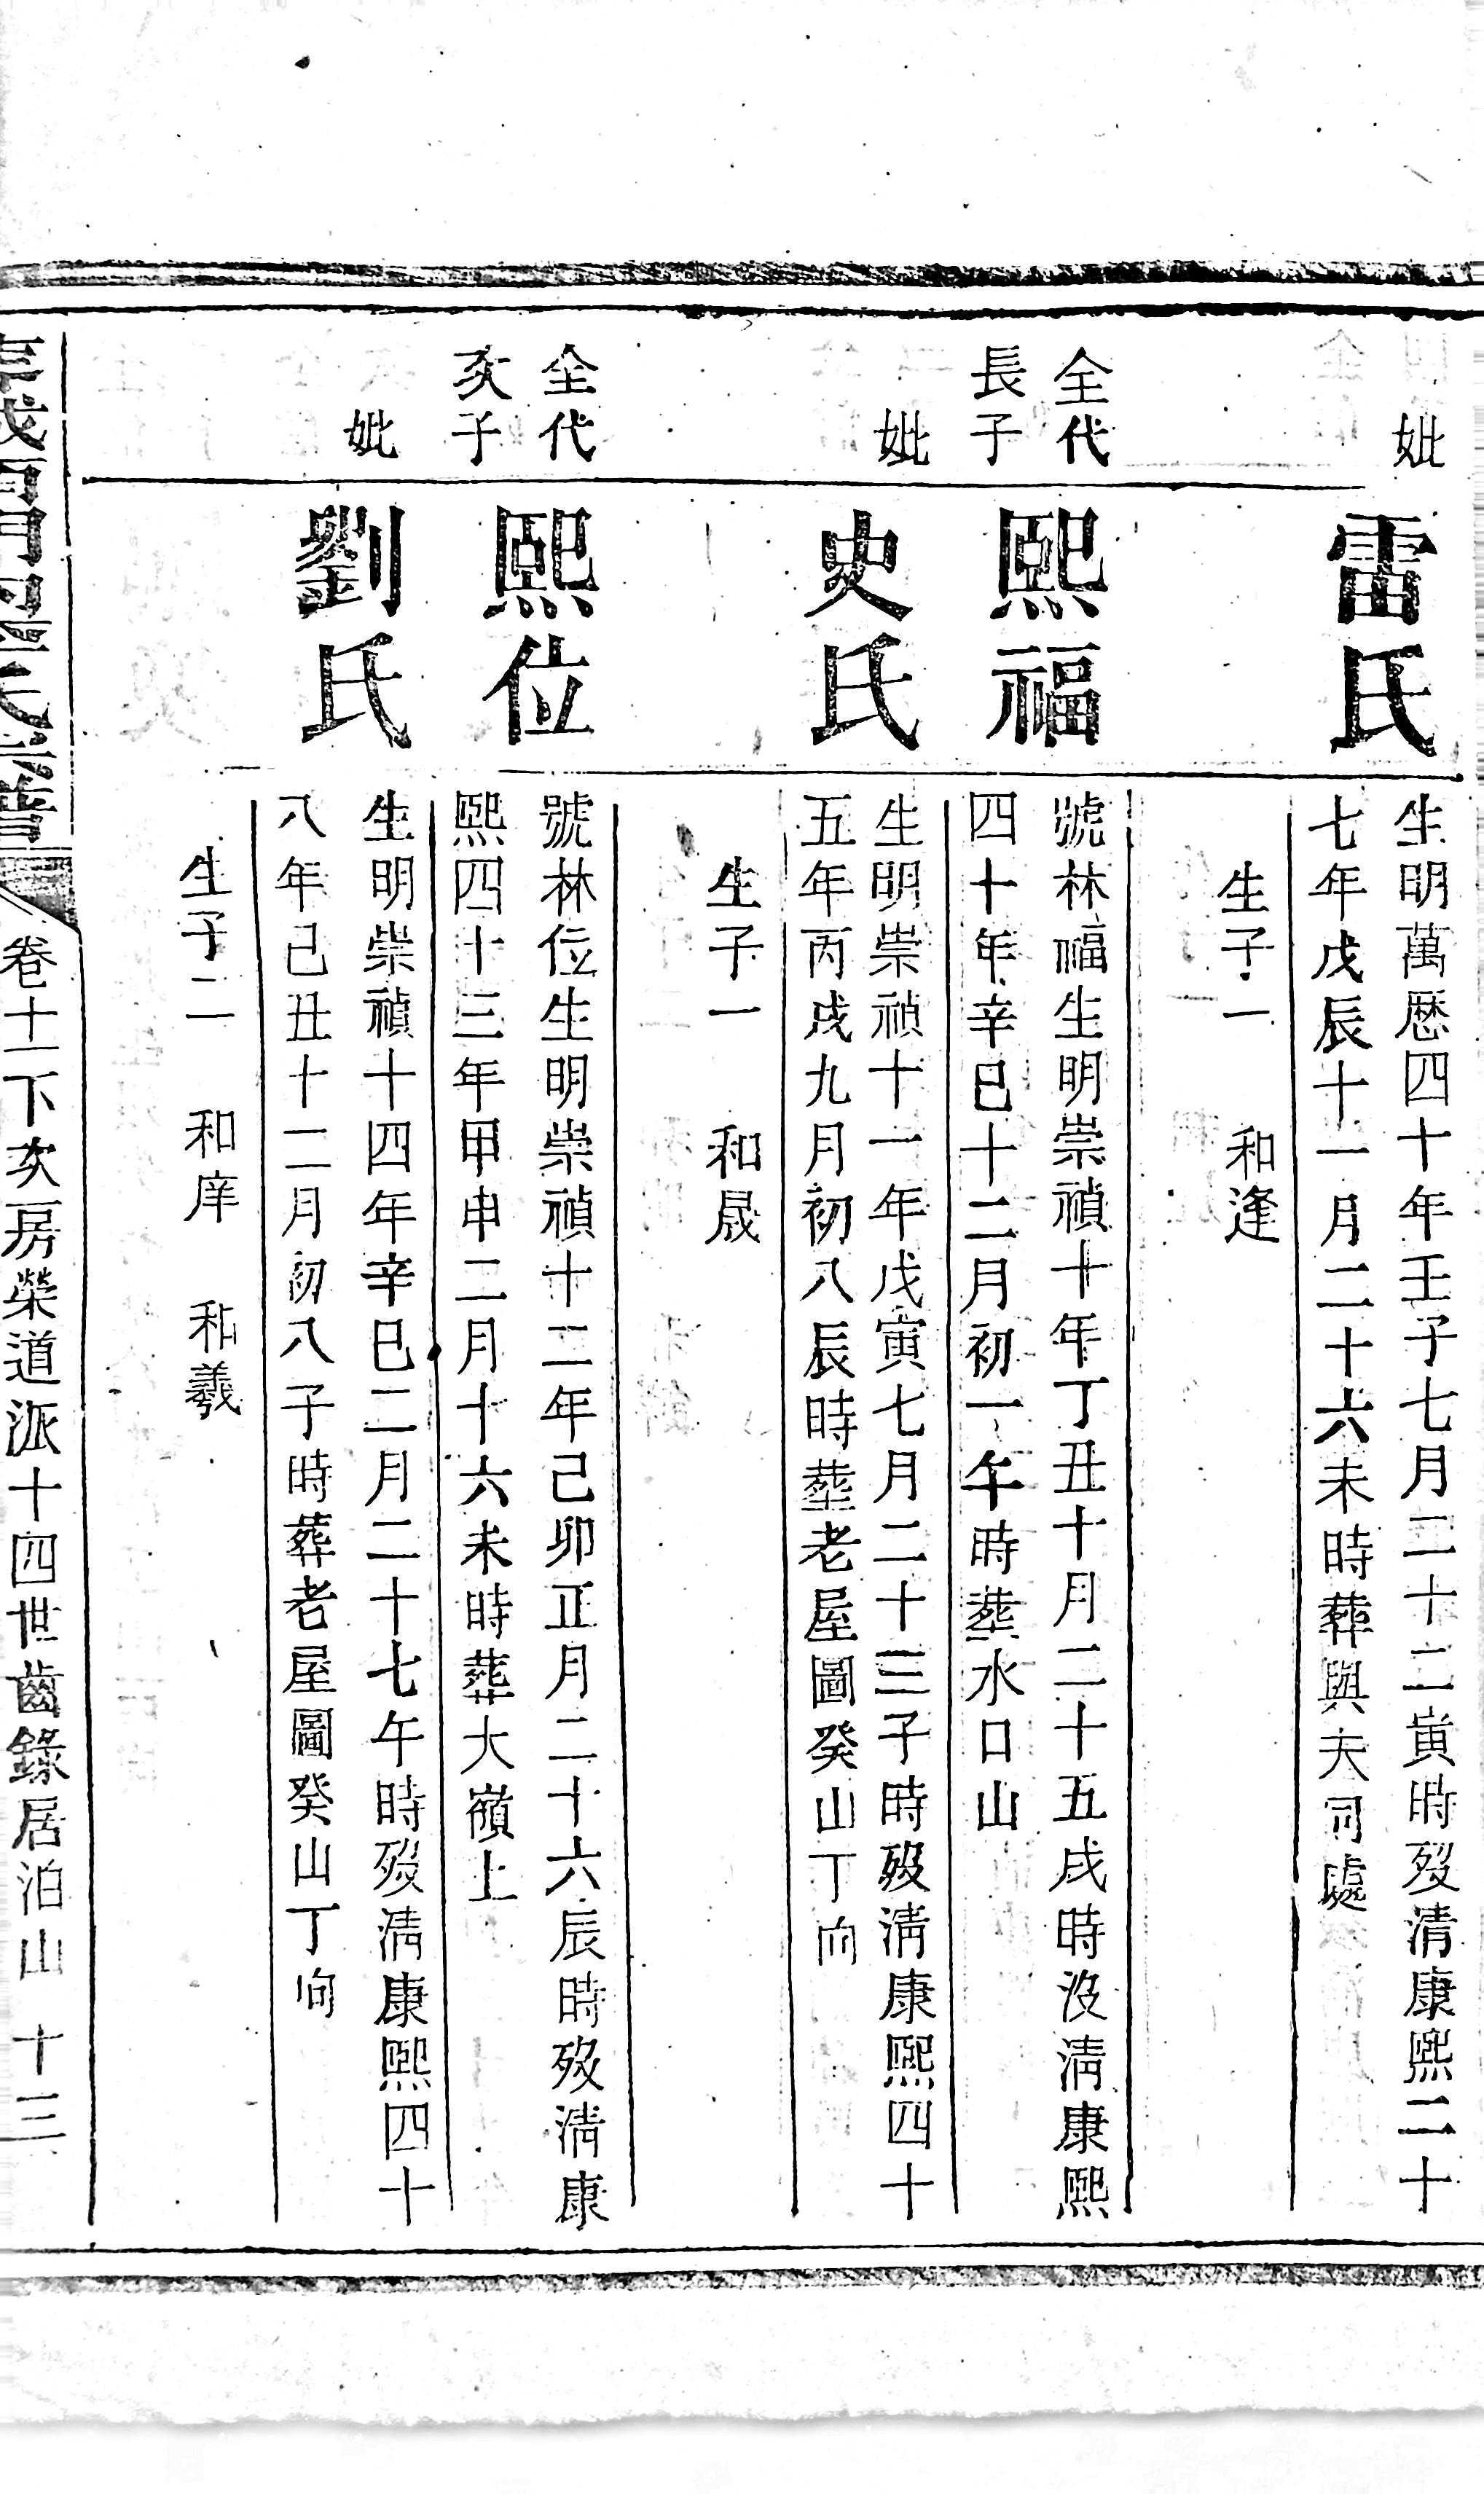 妣
雷氏
生明萬厯四十年壬子七月二十二寅時歿清康熙二十
七年戊辰十一月二十六未時葬與夫同處
生子一 和逢
仝代
長子
熙福
號林福生明崇禎十年丁丑十月二十五戌時沒清康熙
四十年辛巳十二月初一午時葬水口山
妣
史氏
生明崇禎十一年戊寅七月二十三子時歿清康熙四十
五年丙戌九月初八辰時塟老屋圖癸山丁向
生子一 和晟
仝代
次子
熙位
號林位生明崇禎十二年己卯正月二十六辰時歿清康
熙四十三年甲申二月十六未時葬大嶺上
妣
劉氏
生明崇禎十四年辛巳二月二十七午時歿清康熙四十
八年己丑十二月初八子時葬老屋圖癸山丁向
生子二 和庠 和羲
卷十一下次房榮道派十四世齒錄居泊山 十三